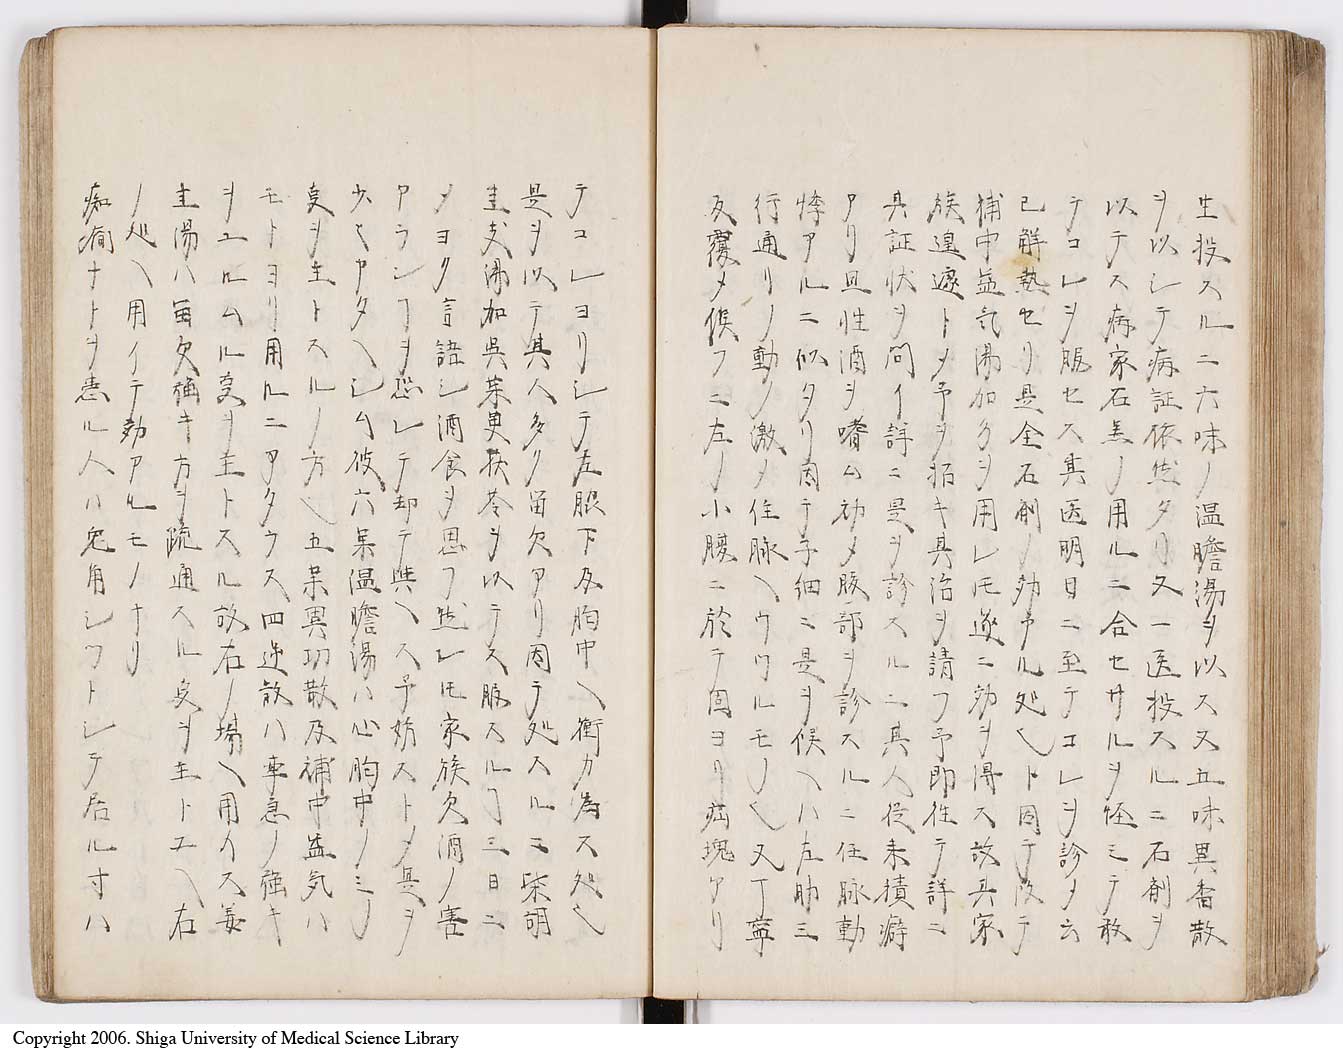 生投スルニ六味ノ温膽湯ヲ以ス又五味異香散
ヲ以シテ病証依然タリ又一医投スルニ石剤ヲ
以テス病家石羔ノ用ルニ合セサルヲ怪ミテ敢
テコレヲ服セス其医明日ニ至テコレヲ診メ云
已觧熱セリ是全石剤ノ効アル処也ト因テ後テ
補中益気湯加味ヲ用レ𪜈遂ニ効ヲ得ス故其家
族遑遽トメ予ヲ招キ其治ヲ請フ予即往テ詳ニ
其証状ヲ問イ詳ニ是ヲ診スルニ其人従来積癖
アリ且性酒ヲ嗜ム初メ腹部ヲ診スルニ任脉動
悸アルニ似タリ因テ子細ニ是ヲ候ヘハ左肋三
行通リノ動ノ激メ任脉ヘウツルモノ也又丁寧
反覆メ候フニ左ノ小腹ニ於テ固ヨリ㽲塊アリ
テコレヨリシテ左脇下及胸中ヘ衝カ為ス処也
是ヲ以テ其人多ク留飲アリ因テ処スルニ柴胡
圭支湯加呉茱萸茯苓ヲ以テス服スルヿ三日ニ
メヨク言語シ酒食ヲ思フ然レ𪜈家族飲酒ノ害
アランヿヲ恐レテ却テ與ヘス予妨ストメ是ヲ
少シクアタヘシム彼六味温膽湯ハ心胸中ノミノ
変ヲ主トスルノ方也五味異功散及補中益気ハ
モトヨリ用ルニアタワス四逆散ハ車急ノ強キ
ヲユルムル変ヲ主トスル故右ノ場ヘ用イス姜
圭湯ハ留飲強キ方ヲ疏通スル変ヲ主トユヘ右
ノ処ヘ用イテ効アルモノナリ
痴癇ナトヲ患ル人ハ兎角シフトレテ居ル寸ハ
Copyright 2006. Shiga University of Medical Science Library